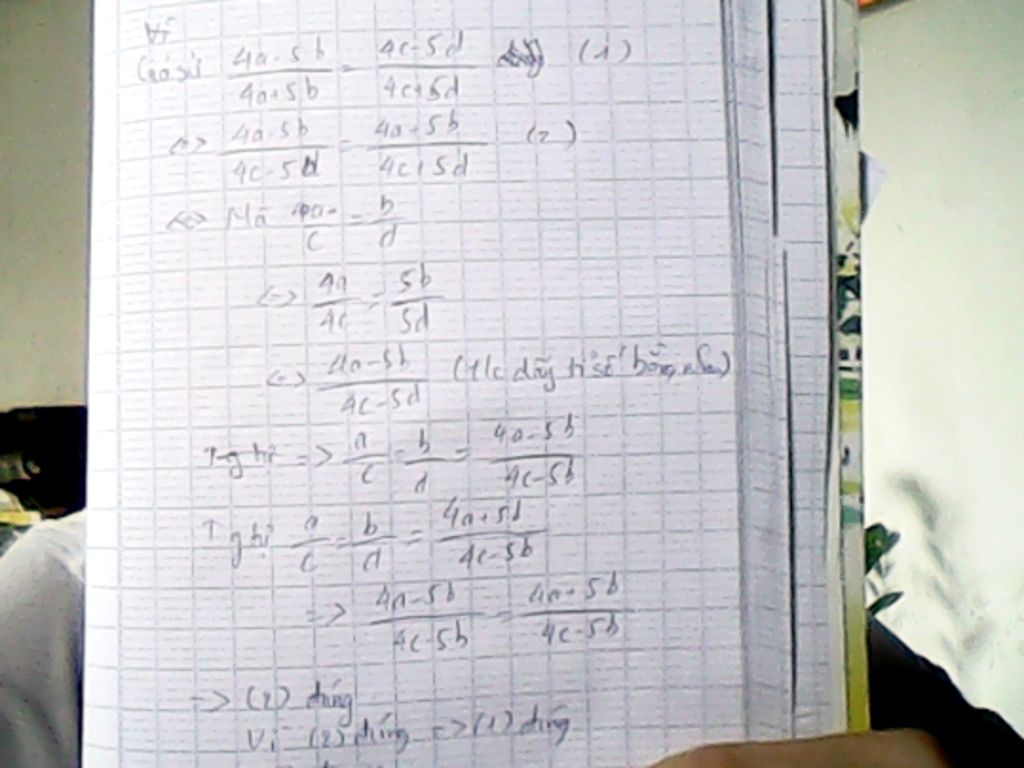 Vì
Giả sử (4a-5b)/(4a+5b) = (4c-5d)/(4c+5d) (1)
<=> (4a-5b)/(4c-5d) = (4a+5b)/(4c+5d) (2)
Mà a/c = b/d
<=> 4a/4c = 5b/5d
<=> (4a-5b)/(4c-5d) (t/c dãy tỉ số bằng nhau)
=> a/c = b/d = (4a-5b)/(4c-5b)
a/c = b/d = (4a+5b)/(4c-5b)
=> (4a-5b)/(4c-5b) = (4a+5b)/(4c-5b)
-> (2) đúng
Vì (2) đúng => (1) đúng